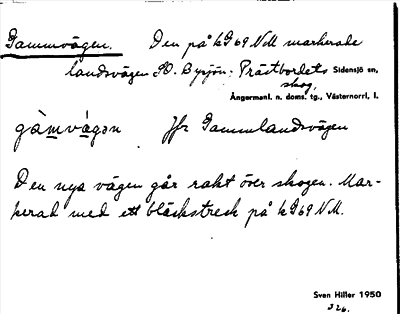 Gammvägen. Den på kG 69 NM markerade
landsvägen SO. Byrsjön: Prästbordets Sidensjö sn,
skog,
Ångermanl. n. doms. tg., Västernorrl. l.
gàmvágən Jfr Gammlandsvägen
Den nya vägen går rakt över skogen. Mar-
kerad med ett bläckstreck på kG 69 NM.
Sven Hiller 1950
326.